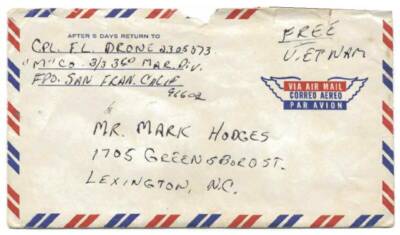 AFTER 5 DAYS RETURN TO
CPL. F.L. DRONE 2305073
"M" CO 3/3 3D MAR. DIV.
FPO. SAN FRAN. CALIF
96602
FREE
VIETNAM
VIA AIR MAIL
CORREO AEREO
PAR AVION
MR. MARK HODGES
1705 GREENSBORO ST.
LEXINGTON, N.C.